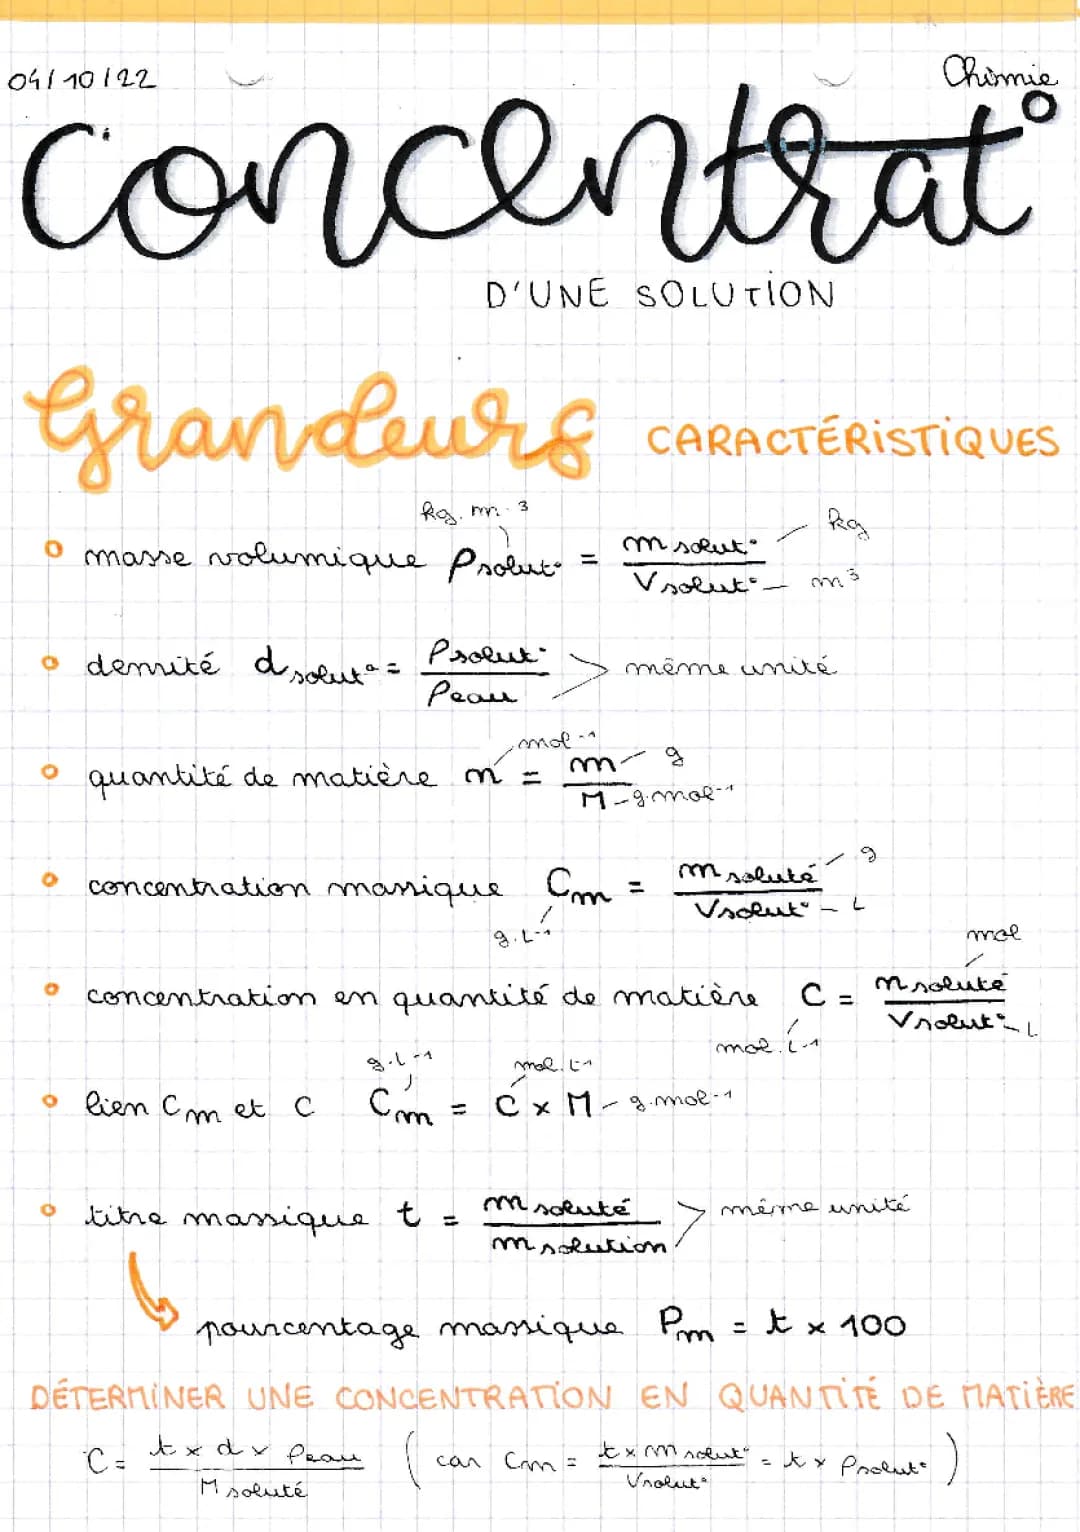 04/10/22 Chimie
Concentrat°
D'UNE SOLUTION
Grandeurs CARACTÉRISTIQUES
kg.m-3
° masse volumique ρsolut° = m solut° / V solut° kg m³
° densité d solut° = ρsolut° / ρeau > même unité
mol-1
° quantité de matière n = m / M g g.mol-1
° concentration massique Cm = m soluté / V solut° g L
g.L-1
mol
° concentration en quantité de matière C = n soluté / V solut° L
mol.L-1
g.L-1 mol.L-1
° lien Cm et C Cm = C x M g.mol-1
° titre massique t = m soluté / m solution > même unité
pourcentage massique Pm = t x 100
DÉTERMINER UNE CONCENTRATION EN QUANTITÉ DE MATIÈRE
C = t x d x ρeau / M soluté ( car Cm = t x m solut° / V solut° = t x ρsolut° )